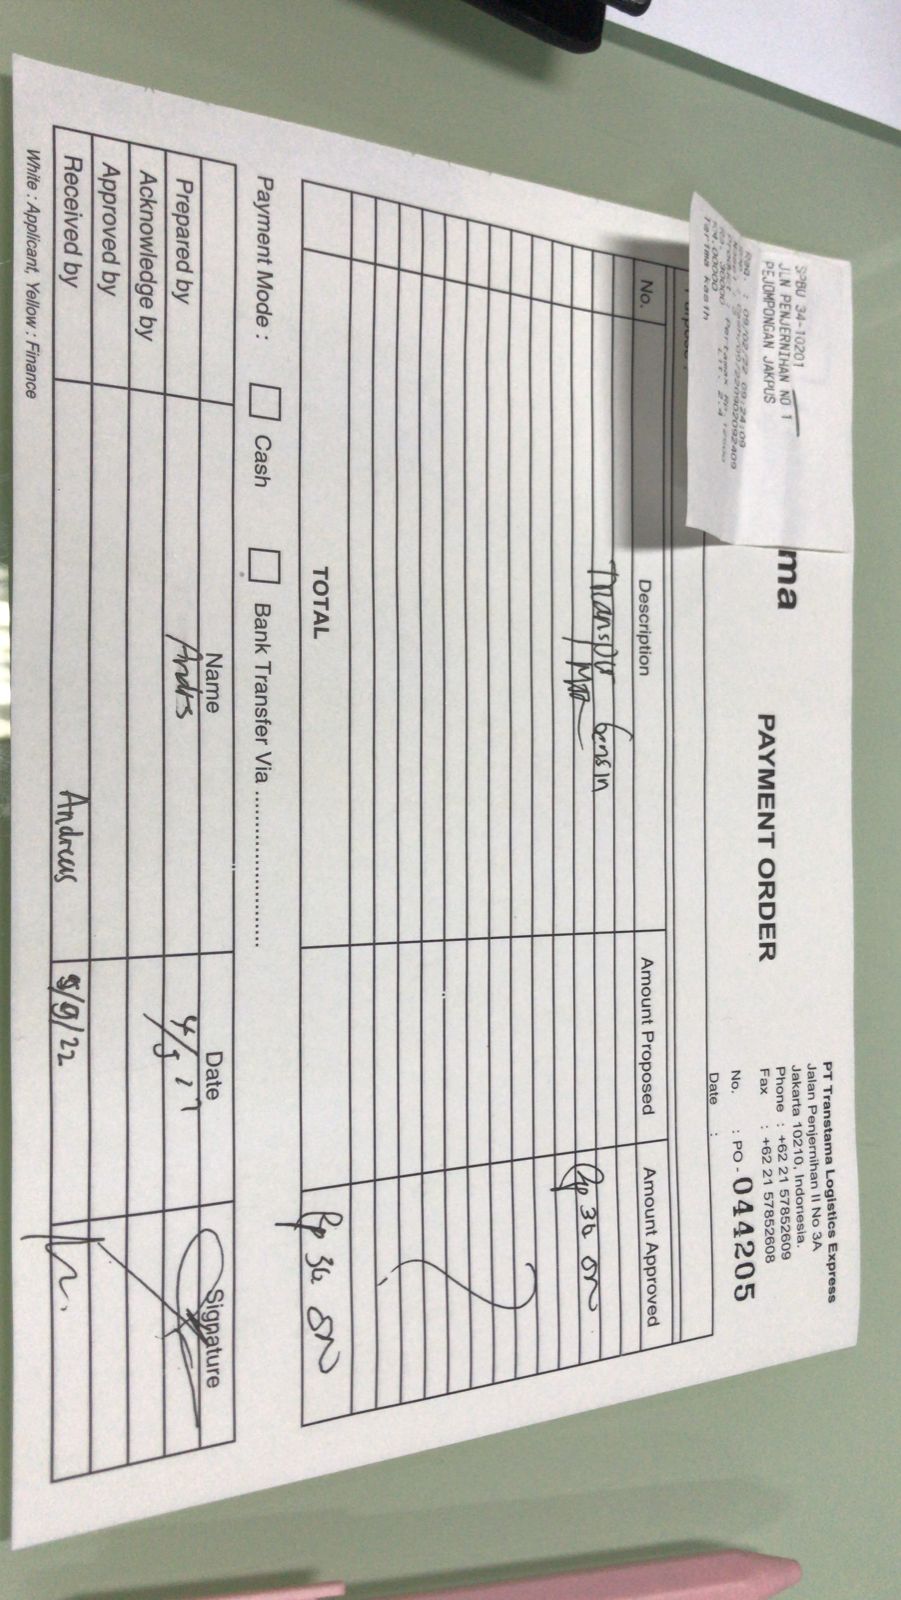 SPBU 34-10201
JLN PENJERNIHAN NO 1
PEJOMPONGAN JAKPUS
09/02/22 09:24:09
Terima kasih
ma
PAYMENT ORDER
PT Transtama Logistics Express
Jalan Penjernihan II No 3A
Jakarta 10210, Indonesia.
Phone : +62 21 57852609
Fax : +62 21 57852608
No. : PO - 044205
Date :
No. Description Amount Proposed Amount Approved
bensin
TOTAL
Payment Mode : Cash Bank Transfer Via ........................
Name Date Signature
Prepared by
Acknowledge by
Approved by
Received by Andreas 5/9/22
White : Applicant, Yellow : Finance